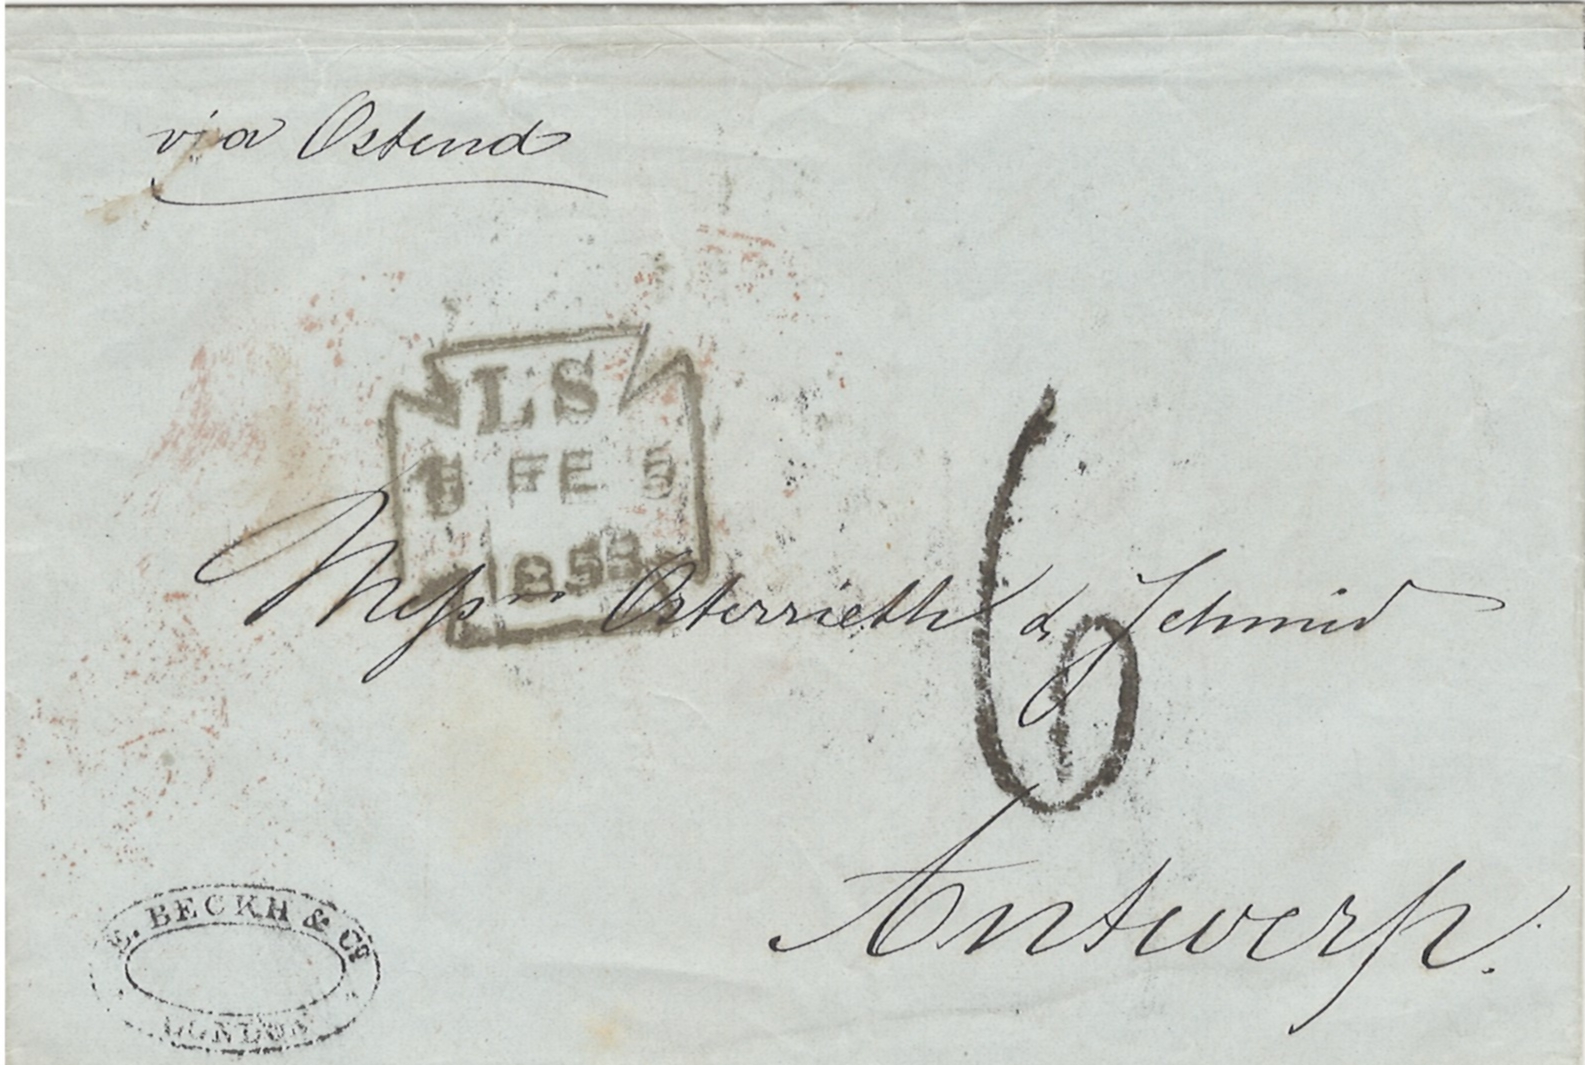 via Ostend
LS
FE 5
6
Messrs Osterrieth & Schmid
Antwerp.
E. BECKH & Co
LONDON